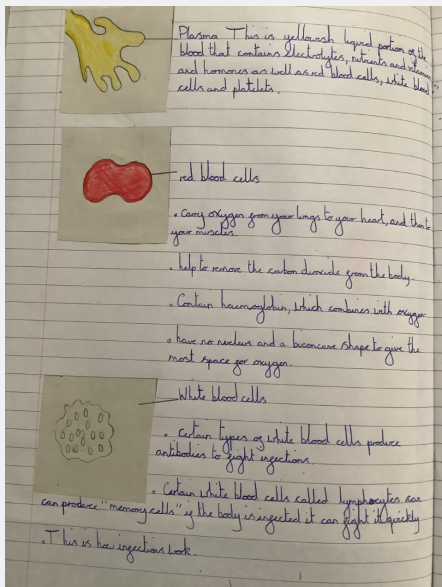 Plasma This is yellowish liquid portion of the
blood that contains electrolytes, nutrients and vitamins
and hormones as well as red blood cells, white blood
cells and platelets.
red blood cells
. Carry oxygen from your lungs to your heart, and then to
your muscles.
. help to remove the carbon dioxide from the body.
. Contain haemoglobin, which combines with oxygen
. have no nucleus and a biconcave shape to give the
most space for oxygen.
White blood cells
. Certain types of white blood cells produce
antibodies to fight infections.
. Certain white blood cells called lymphocytes can
can produce "memory cells" if the body is infected it can fight it quickly
. This is how injections work.